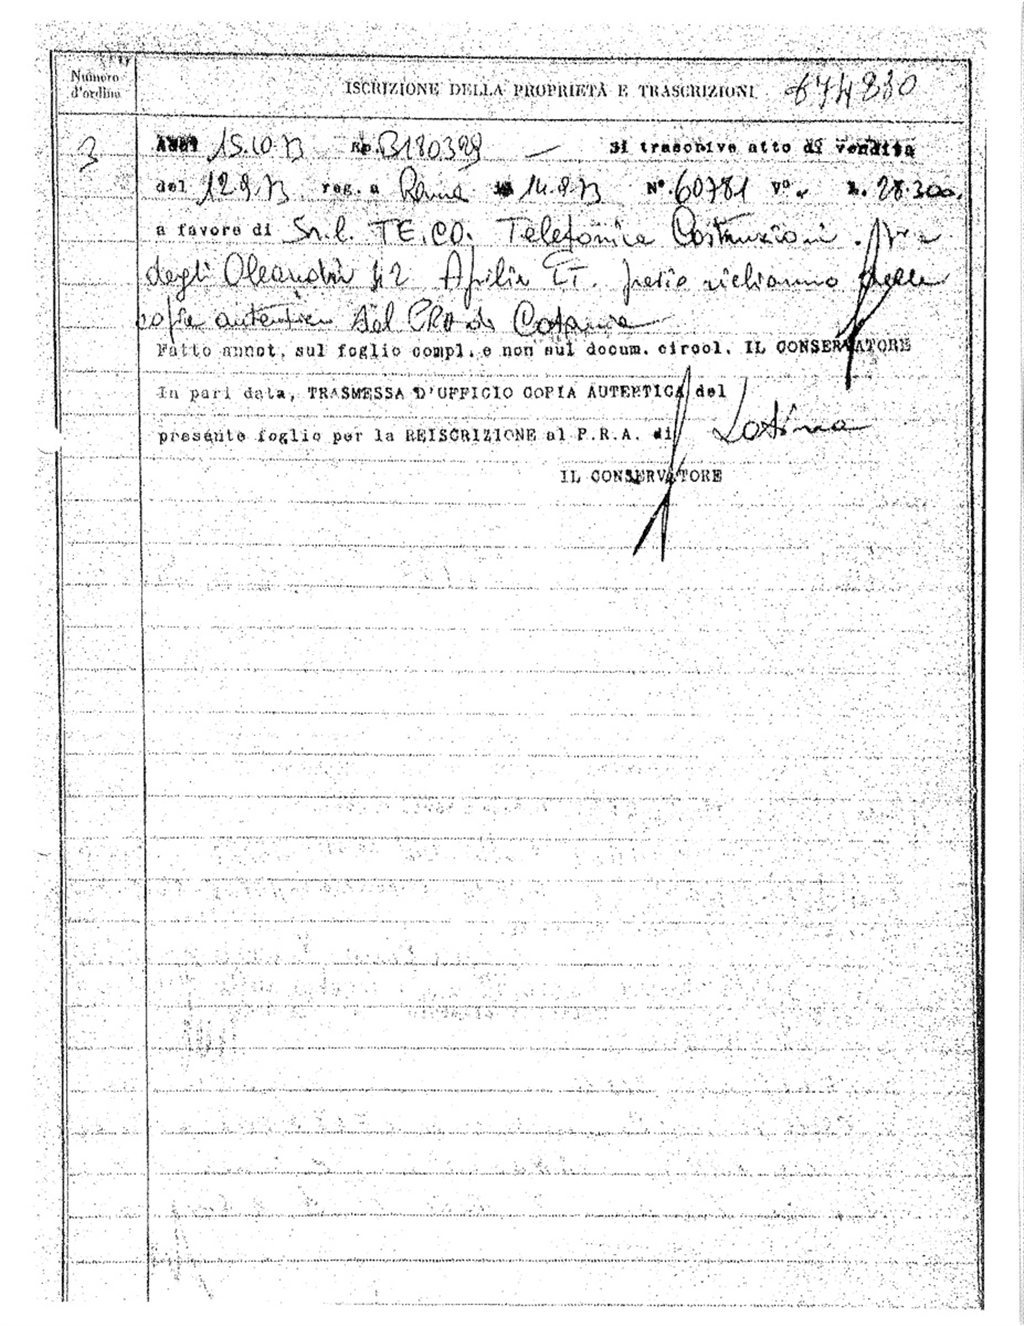 Numero d'ordine
ISCRIZIONE DELLA PROPRIETÀ E TRASCRIZIONI 674830
3
15.10.73 Rp. B180399 — Si trascrive atto di vendita
del 12.9.73 reg. a Roma 14.9.73 N°. 60781 V°. - L. 28.300.
a favore di S.r.l. TE.CO. Telefonica Costruzioni.
degli Oleandri 42 Aprilia LT.
copia autentica del PRA di Catania
Fatto annot. sul foglio compl. e non sul docum. circol. IL CONSERVATORE
In pari data, TRASMESSA D'UFFICIO COPIA AUTENTICA del
presente foglio per la REISCRIZIONE al P.R.A. di Latina
IL CONSERVATORE